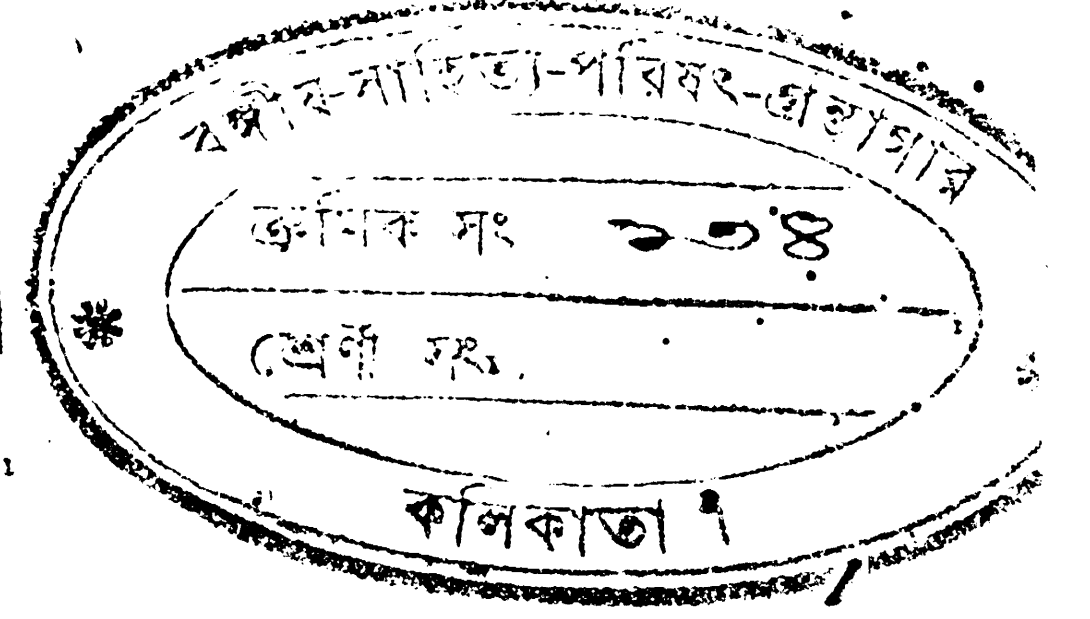 বঙ্গীয়-সাহিত্য-পরিষৎ-গ্রন্থাগার
ক্রমিক সং ১৩৪
শ্রেণী সং
কলিকাতা